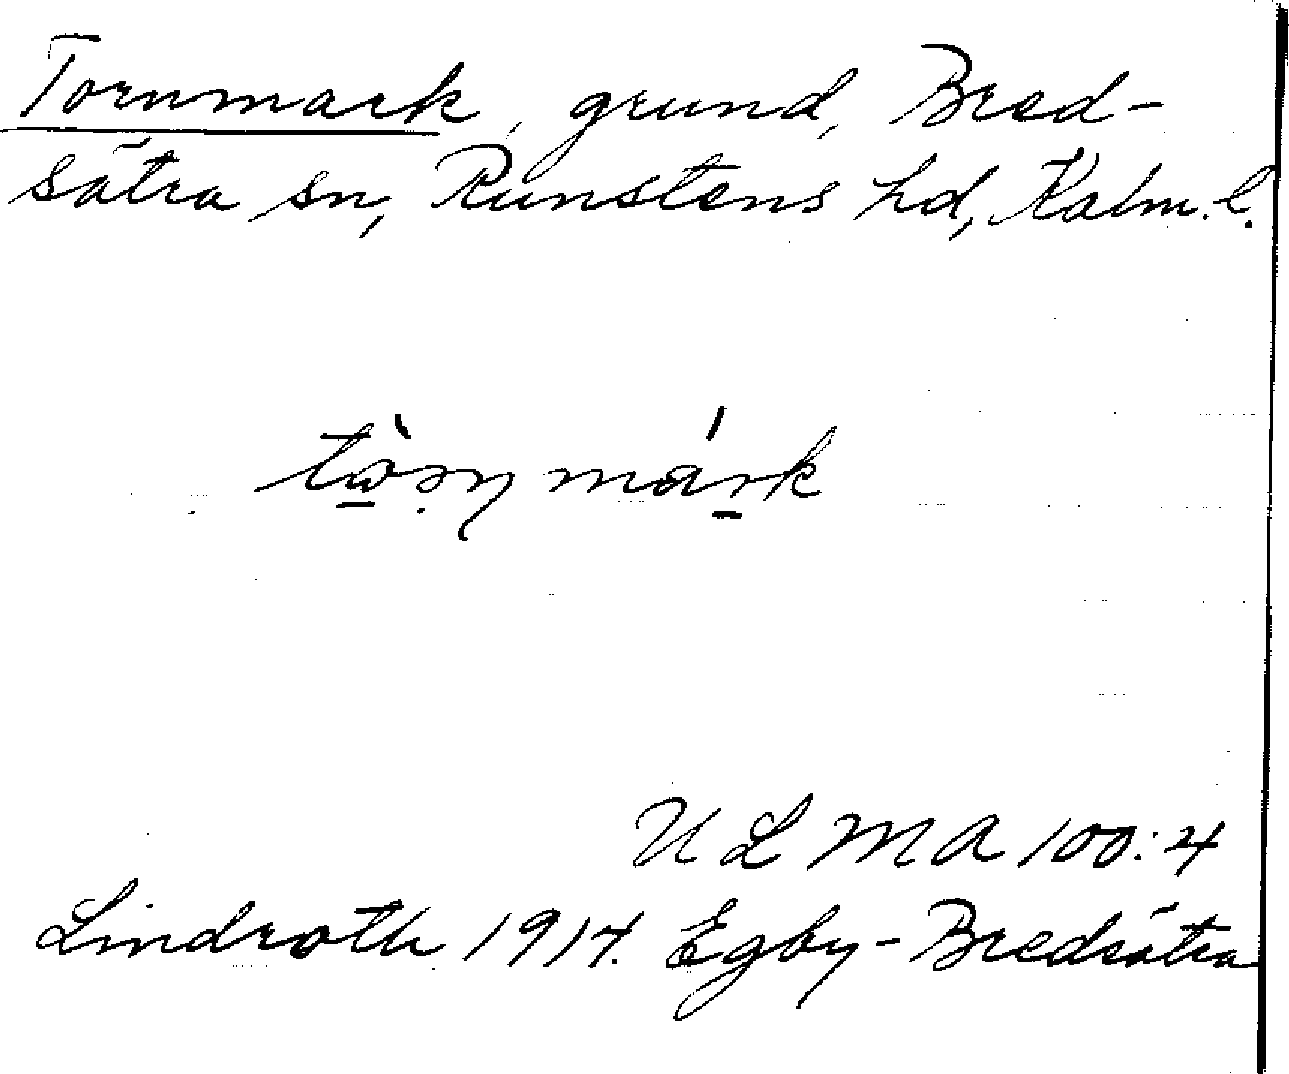 Tornmark, grund, Bred-
sätra sn, Runstens hd, Kalm. l.
ULMA 100:4
Lindroth 1914. Egby-Bredsätra